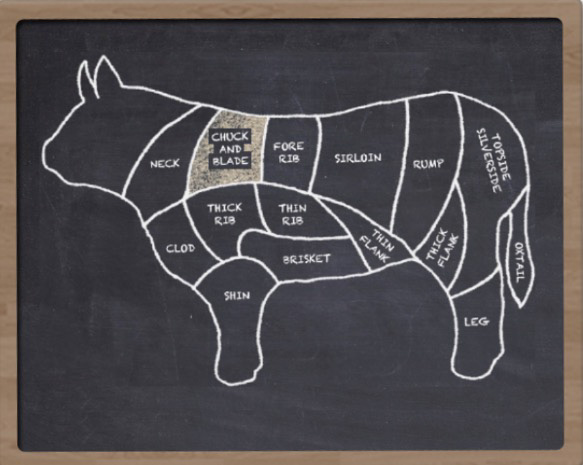 CHUCK
AND
BLADE
NECK
FORE
RIB
SIRLOIN
RUMP
TOPSIDE
SILVERSIDE
THICK
RIB
THIN
RIB
CLOD
BRISKET
THIN
FLANK
THICK
FLANK
OXTAIL
SHIN
LEG